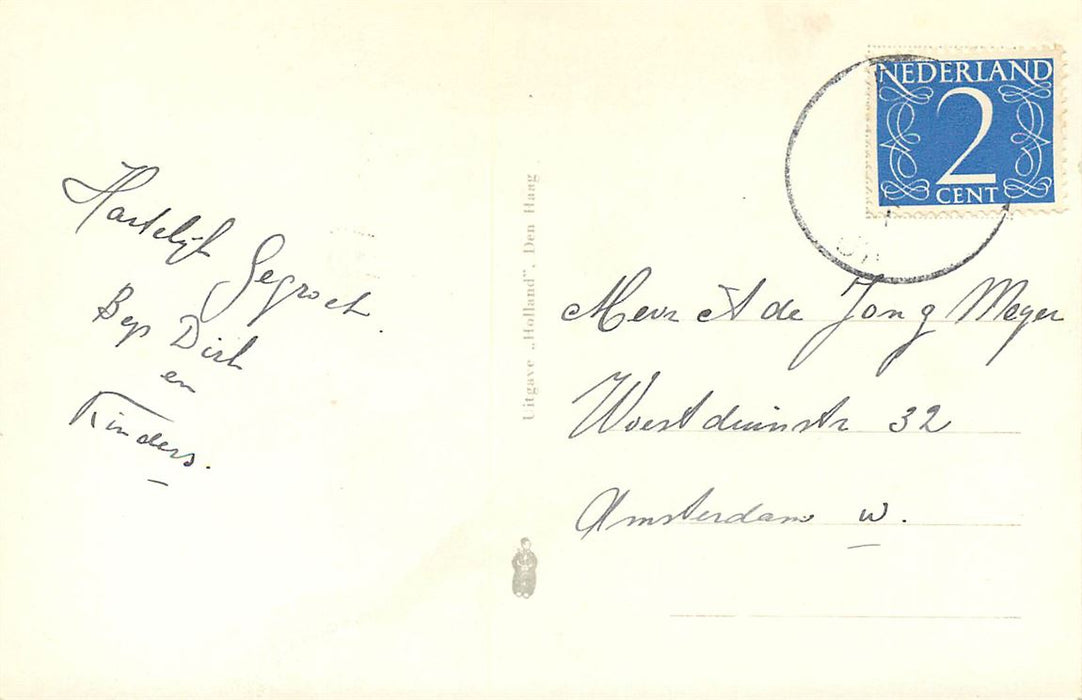 Hartelijk Gegroet.
Bep Dirk
en
Kinders.
Uitgave „Holland”, Den Haag
NEDERLAND
2
CENT
Mevr A de Jong Meyer
Woestduinstr 32
Amsterdam W.